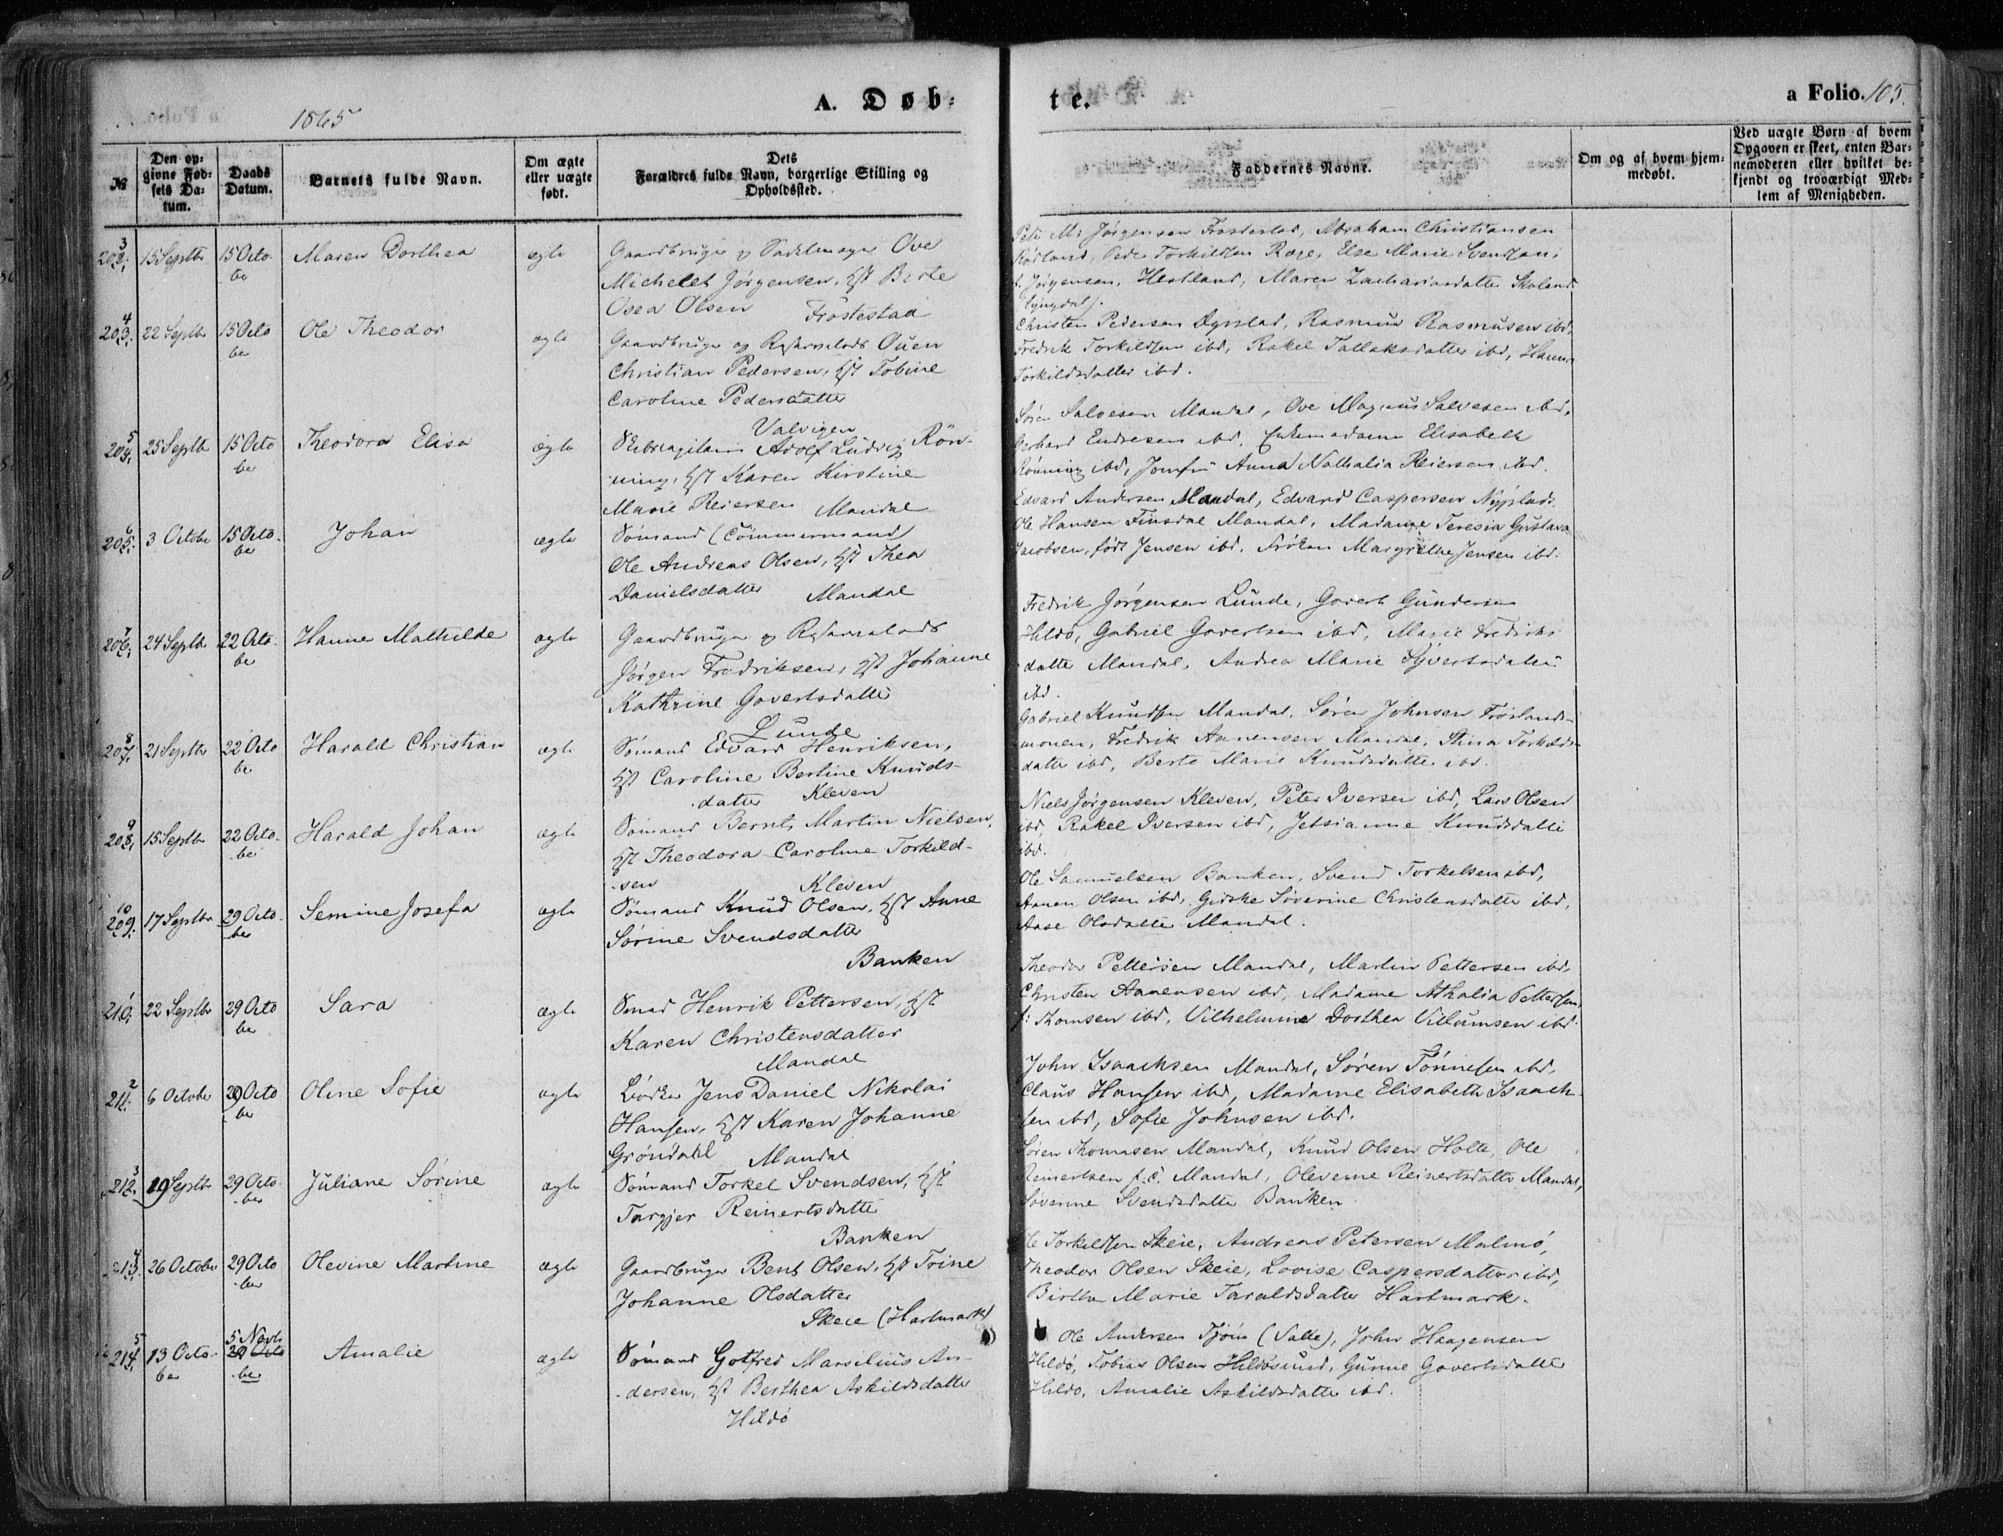 1865
A. Døb-
te.
a Folio. 105.
№
Den op-
givne Fød-
sels Da-
tum.
Daabs
Datum.
Barnets fulde Navn.
Om ægte
eller uægte
født.
Dets
Forældres fulde Navn, borgerlige Stilling og
Opholdssted.
Faddernes Navne.
Om og af hvem hjem-
medøbt.
Ved uægte Børn af hvem
Opgaven er skeet, enten Bar-
nemoderen eller hvilket be-
kjendt og troværdigt Med-
lem af Menigheden.
3
202. 15 Septbr 15 Octo
ber
Maren Dorthea
ægte
Gaardbruger & Sadelmager Ove
Michelet Jørgensen, Hst Birte
Osea Olsen Frøstestad
Jørgensen Frøstestad, Abraham Christiansen
Peder Torkildsen Røge, Else Marie Svendsen,
f. Jørgensen, Hestland, Maren Zachariasdatter
Lyngdal.
4
203. 22 Septbr 15 Octo
ber
Ole Theodor
ægte
Gaardbruger og Reserselods Ouen
Christian Pedersen, Hst Tobine
Caroline Pedersdatter
Valvigen
Christen Pedersen Dyrstad, Rasmus Rasmusen ibd,
Fredrik Torkildsen ibd, Rakel Tallaksdatter ibd, Hanne
Torkildsdatter ibd.
5
204. 25 Septbr 15 Octo
ber
Theodora Elisa
ægte
Skibscapitain Adolf Ludvig Røn-
ning, Hst Karen Kirstine
Marie Reiersen Mandal
Søren Salvesen Mandal, Ove Magnus Salvesen ibd,
Gerhard Endresen ibd, Enkemadame Elisabeth
Rønning ibd, Jomfru Anna Nathalia Reiersen ibd.
6
205. 3 Octobr 15 Octo-
ber
Johan
ægte
Sømand (Tømmermand)
Ole Andreas Olsen, Hst Thea
Danielsdatter Mandal
Edvard Andersen Mandal, Edvard Caspersen Nyplads
Ole Hansen Finsdal Mandal, Madame Teresia Gustava
Jacobsen, født Jensen ibd, Frøken Margrethe Jensen ibd.
7
206. 24 Septbr 22 Octo-
ber
Hanne Mathilde
ægte
Gaardbruger & Reserselods
Jørgen Fredriksen, Hst Johanne
Kathrine Govertsdatter
Lunde
Fredrik Jørgensen Lunde, Govert Gundersen
Hildø, Gabriel Govertsen ibd, Marie Fredriks-
datter Mandal, Andrea Marie Syvertsdatter
ibd.
8
207. 21 Septbr 22 Octo
ber
Harald Christian
ægte
Sømand Edvard Henriksen,
Hst Caroline Bertine Knuds-
datter Kleven
Gabriel Knudsen Mandal, Søren Johnsen Frøslands-
monen, Fredrik Aanensen Mandal, Stina Torkelds-
datter ibd, Berte Marie Knudsdatter ibd.
9
208. 15 Septbr 22 Octo-
ber
Harald Johan
ægte
Sømand Bernt Martin Nielsen,
Hst Theodora Caroline Torkild-
sen Kleven
Niels Jørgensen Kleven, Peter Iversen ibd, Lars Olsen
ibd, Rakel Iversen ibd, Jetsianne Knudsdatter
ibd.
10
209. 17 Septbr 29 Octo-
ber
Semine Josefa
ægte
Sømand Knud Olsen, Hst Anne
Sørine Svendsdatter
Banken
Ole Samuelsen Banken, Svend Torkelsen ibd,
Aanen Olsen ibd, Gidske Severine Christensdatter ibd,
Aase Olsdatter Mandal.
1
210. 22 Septbr 29 Octo
ber
Sara
ægte
Smed Henrik Pettersen, Hst
Karen Christensdatter
Mandal
Theodor Pettersen Mandal, Martin Pettersen ibd,
Christen Aanensen ibd, Madame Athalia Pettersen,
f: Thomsen ibd, Vilhelmine Dorthea Villumsen ibd.
2
211. 6 October 29 Octo
ber
Oline Sofie
ægte
Bødker Jens Daniel Nikolai
Hansen, Hst Karen Johanne
Grøndahl Mandal
John Isaachsen Mandal, Søren Tønnesen ibd,
Claus Hansen ibd, Madame Elisabeth Isaach-
sen ibd, Sofie Johnsen ibd.
3
212. 19 Septbr 29 Octo-
ber
Juliane Sørine
ægte
Sømand Torkel Svendsen, Hst
Targjer Reinertsdatter
Banken
Søren Thomasen Mandal, Knud Olsen Holte, Ole
Reinertsen Mandal, Oleverne Reinertsdatter Mandal,
Severine Svendsdatter Banken
4
213. 26 October 29 Octo
ber
Olevine Martine
ægte
Gaardbruger Bent Olsen, Hst Trine
Johanne Olsdatter
Skeie (Hartmark)
Ole Torkildsen Skeie, Andreas Petersen Malmø,
Theodor Olsen Skeie, Lovise Caspersdatter ibd,
Birthe Marie Taraldsdatter Hartmark.
5
214. 13 Octo-
ber
5 Novbr
29 Octo
ber
Amalie
ægte
Sømand Gotfred Marselius An-
dersen, Hst Berthea Askildsdatter
Hildø
Ole Andersen Tjøm (Valle), John Haagensen
Hildø, Tobias Olsen Hildøsund, Gunne Govertsdatter
Hildø, Amalie Askildsdatter ibd.